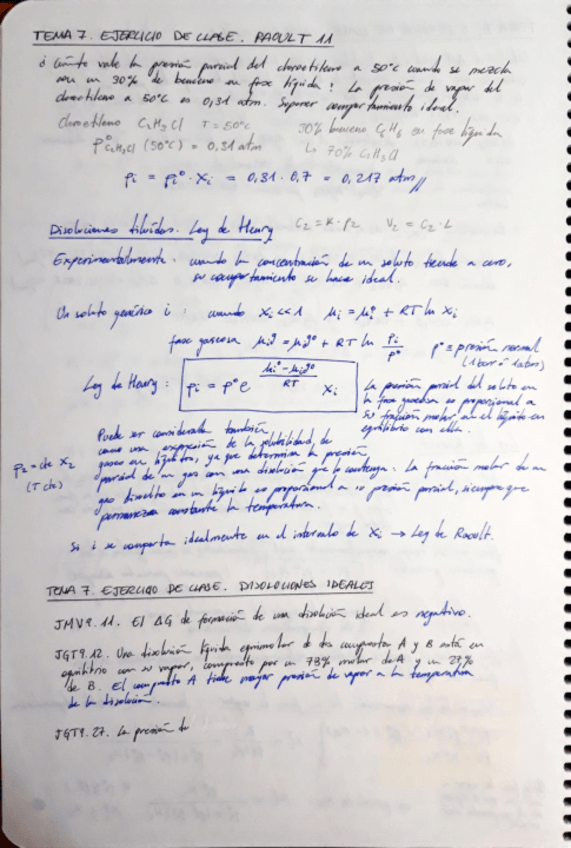 TEMA 7. EJERCICIO DE CLASE. RAOULT 11
¿ Cuánto vale la presión parcial del cloroetileno a 50°C cuando se mezcla
con un 30% de benceno en fase líquida? La presión de vapor del
cloroetileno a 50°C es 0,31 atm. Suponer comportamiento ideal.
Cloroetileno C₂H₃Cl T=50°C 30% benceno C₆H₆ en fase líquida
P°C₂H₃Cl (50°C) = 0,31 atm ↳ 70% C₂H₃Cl
Pi = Pi° · Xi = 0,31 · 0,7 = 0,217 atm //
Disoluciones diluidas. Ley de Henry C₂ = K · P₂ V₂ = C₂ · L
Experimentalmente: cuando la concentración de un soluto tiende a cero,
su comportamiento se hace ideal.
Un soluto genérico i : cuando Xi << 1 μi = μi° + RT ln Xi
fase gaseosa μi,g = μi,g° + RT ln Pi/P° P° = presión normal
(1 bar ó 1 atm)
Ley de Henry : Pi = P° e^((μi° - μi,g°)/RT) Xi
La presión parcial del soluto en
la fase gaseosa es proporcional a
su fracción molar en el líquido en
equilibrio con ella.
Puede ser considerada también
como una expresión de la solubilidad, de
gases en líquidos, ya que determina la presión
P₂ = cte X₂
(T cte)
parcial de un gas con una disolución que lo contenga: La fracción molar de un
gas disuelto en un líquido es proporcional a su presión parcial, siempre que
permanezca constante la temperatura.
Si i se comporta idealmente en el intervalo de Xi → Ley de Raoult.
TEMA 7. EJERCICIO DE CLASE. DISOLUCIONES IDEALES
JMV9.11. El ΔG de formación de una disolución ideal es negativo.
JGT9.12. Una disolución líquida equimolar de dos compuestos A y B está en
equilibrio con su vapor, compuesto por un 73% molar de A y un 27%
de B. El compuesto A tiene mayor presión de vapor a la temperatura
de la disolución.
JGT9.27. La presión d